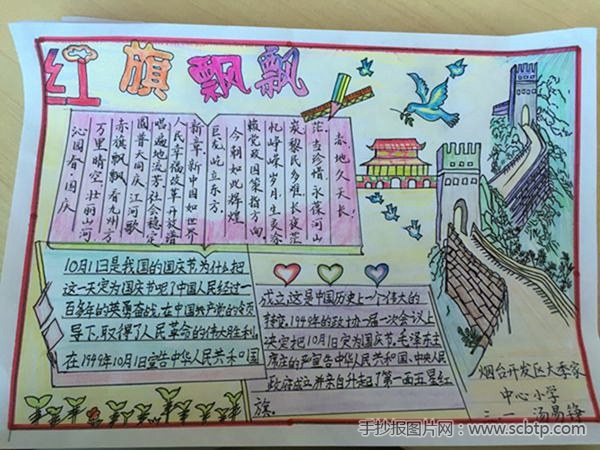 红旗飘飘
沁园春·国庆
万里晴空,壮丽山河
赤旗飘飘,看九州方
圆普天同庆,江河歌
唱遍地流芳社会稳定
人民幸福改革开放谱
新章,新中国如世界
巨龙屹立东方。
今朝如此辉煌
赖党政国策指方向
忆峥嵘岁月,生灵涂
炭黎民多难,长夜茫
茫当珍惜,永葆河山
赤地久天长!
10月1日是我国的国庆节为什么把
这一天定为国庆节呢?中国人民经过一
百多年的英勇奋战,在中国共产党的领
导下,取得了人民革命的伟大胜利,
在1949年10月1日宣告中华人民共和国
成立,这是中国历史上一个伟大的
转变,1949年的政协一届一次会议上
决定把10月1日定为国庆节,毛泽东主
席庄的严宣告中华人民共和国、中央人民
政府成立并亲自升起了第一面五星红
旗。
烟台开发区大季家
中心小学
三.一 汤易锋
手抄报图片网:www.scbtp.com